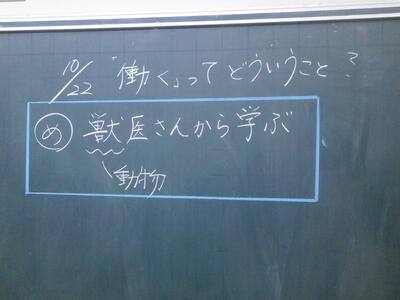 10/22 「働く」ってどういうこと?
め 獣医さんから学ぶ
動物